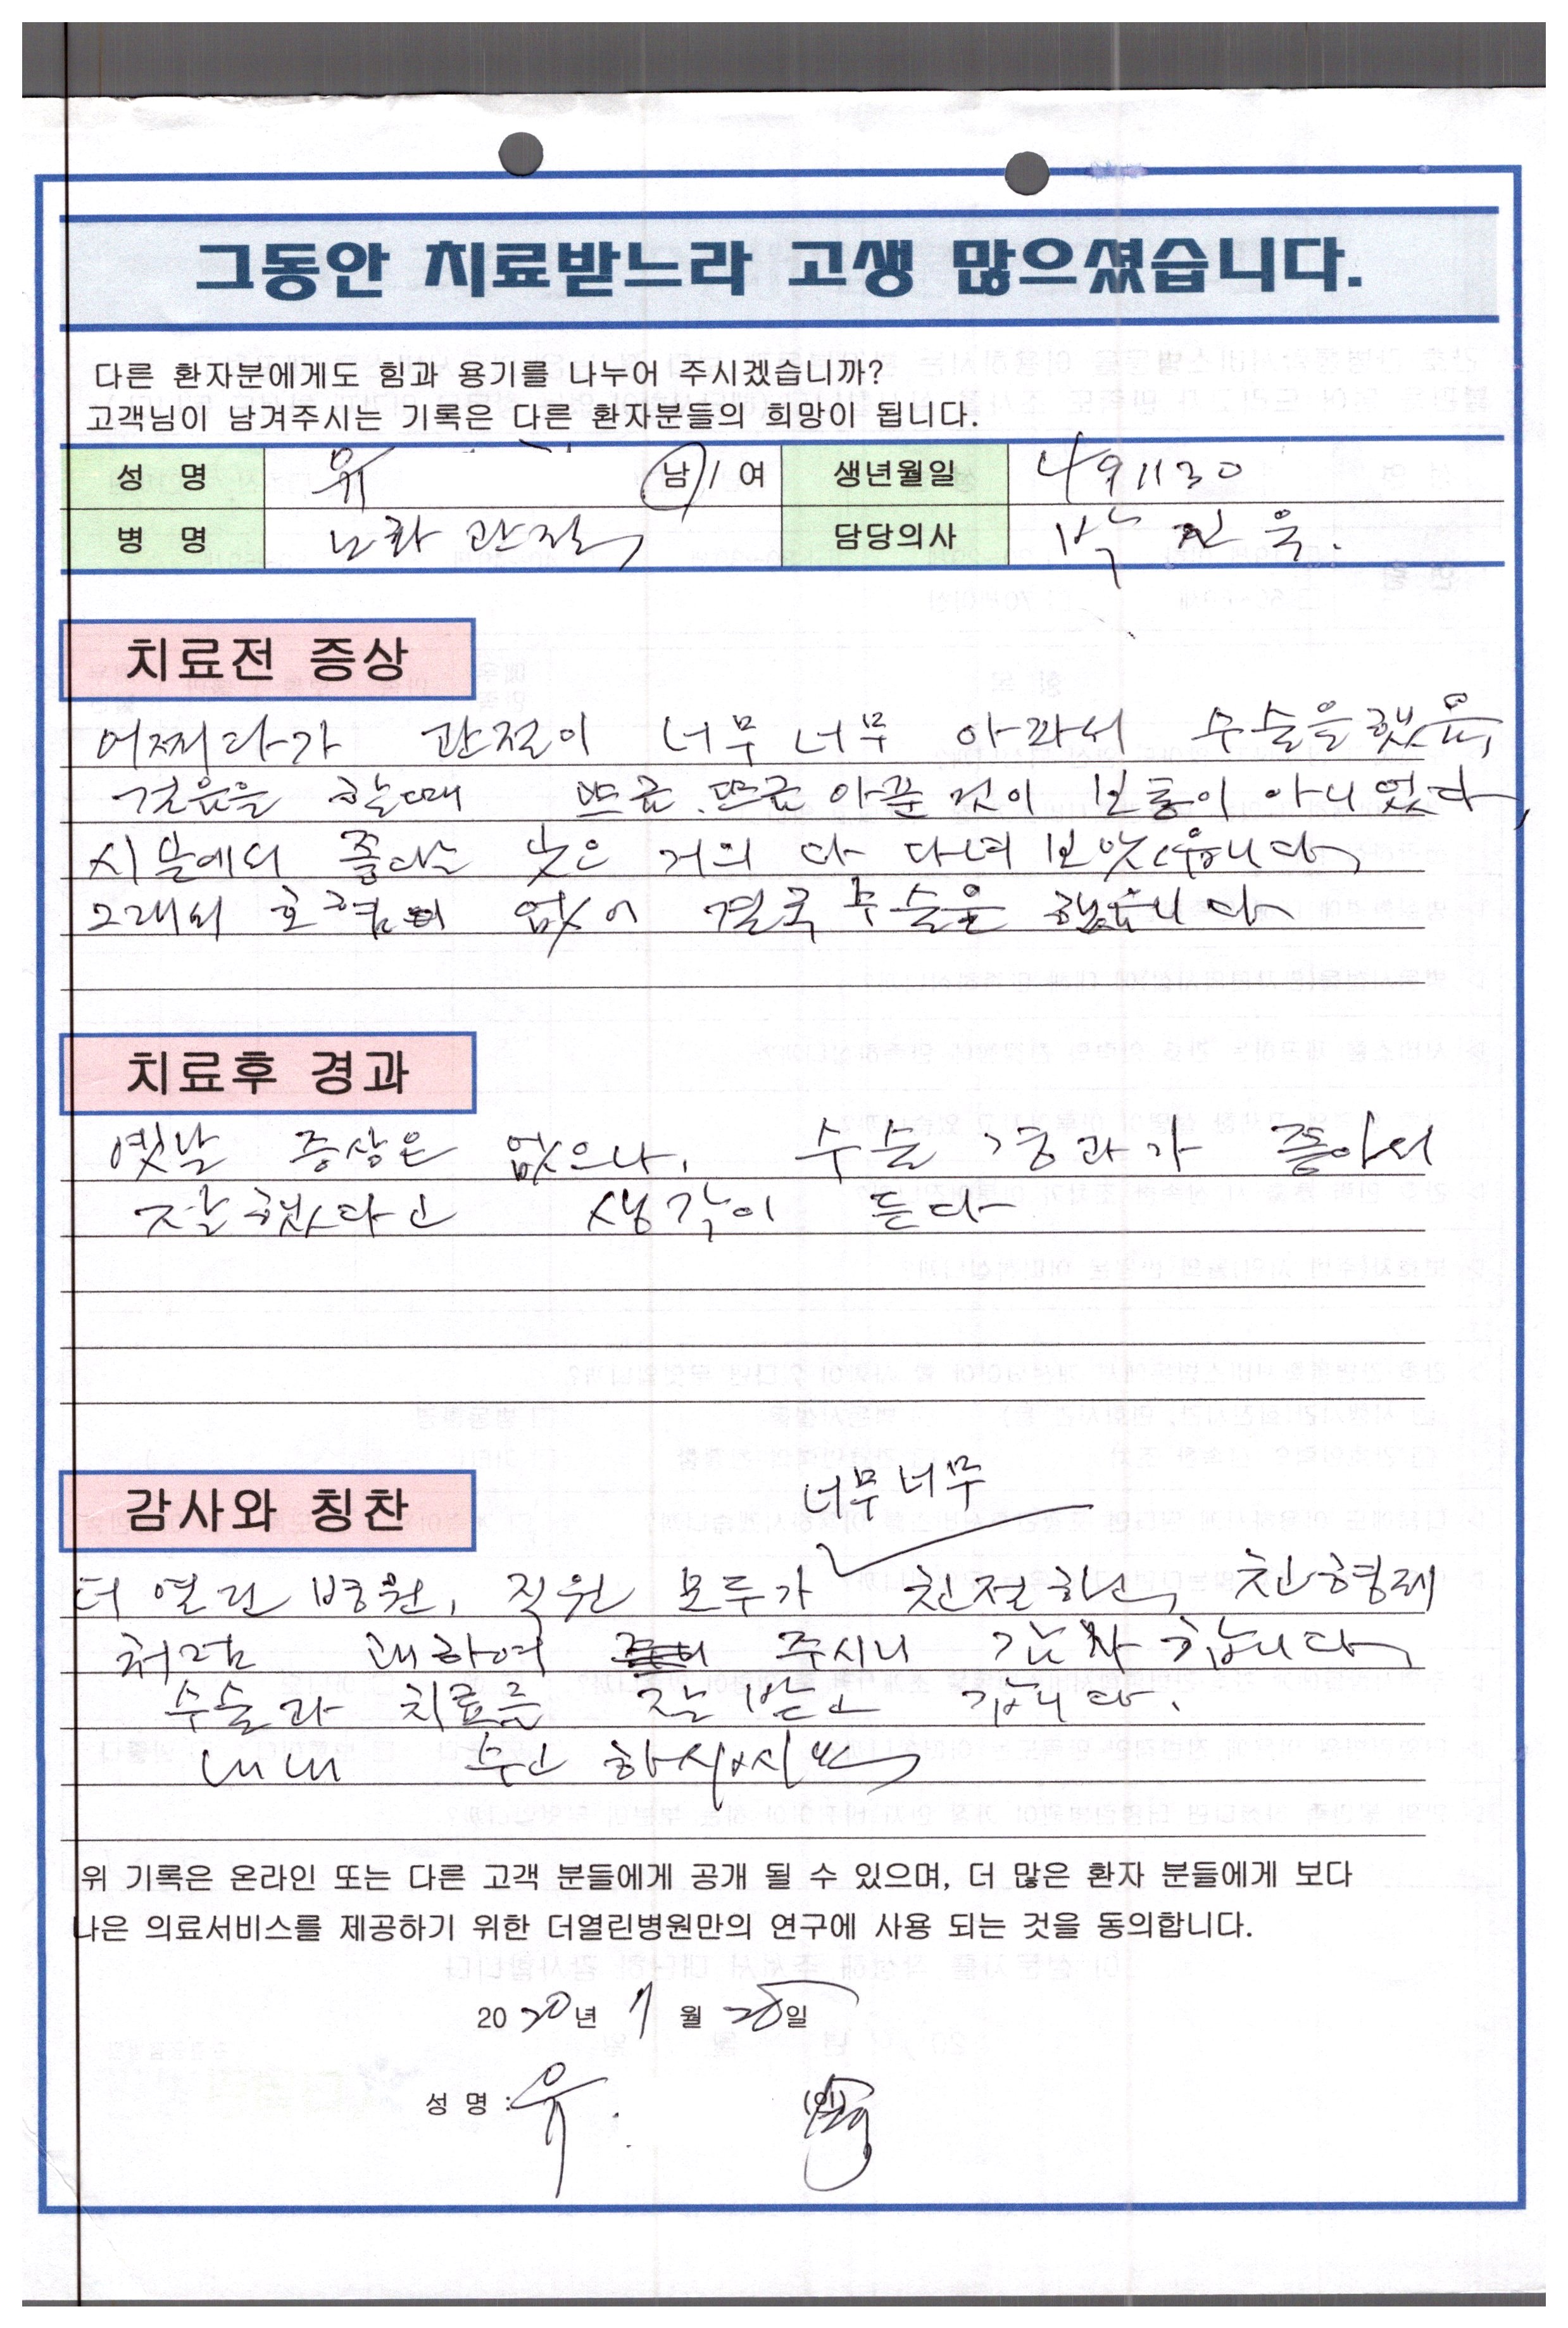 그동안 치료받느라 고생 많으셨습니다.
다른 환자분에게도 힘과 용기를 나누어 주시겠습니까?
고객님이 남겨주시는 기록은 다른 환자분들의 희망이 됩니다.
성 명 유 남 / 여 생년월일 491130
병 명 노화 관절 담당의사 박 진 욱.
치료전 증상
어찌다가 관절이 너무 너무 아파서 수술을 했음,
걸음을 할때 뜨끔 뜨끔 아픈 것이 보통이 아니었다,
시분에서 좋다는 낮은 거의 다 다녀 보았습니다,
그래서 호험이 없어 결국 수술을 했습니다
치료후 경과
옛날 증상은 없으나, 수술 경과가 좋아서
잘했다고 생각이 든다
감사와 칭찬
너무 너무
더 열린 병원, 직원 모두가 친절하고, 친형제
처럼 대하여 주시니 감사합니다,
수술과 치료를 잘 받고 갑니다.
내내 수고 하십시요,
위 기록은 온라인 또는 다른 고객 분들에게 공개 될 수 있으며, 더 많은 환자 분들에게 보다
나은 의료서비스를 제공하기 위한 더열린병원만의 연구에 사용 되는 것을 동의합니다.
2020년 7월 28일
성 명 : 유